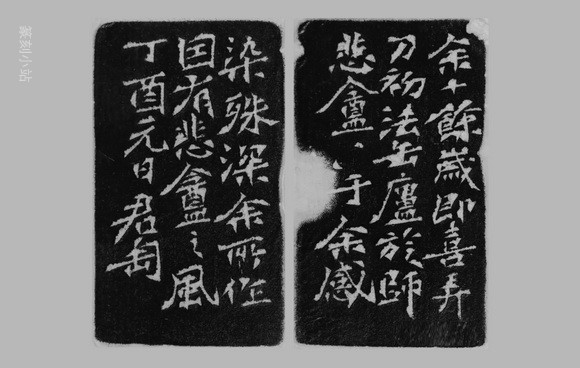 余十餘歲即喜弄
刀初法缶廬旋師
悲盦、于余感
染殊深余所作
囙有悲盦之風
丁酉元日君匋
篆刻小站